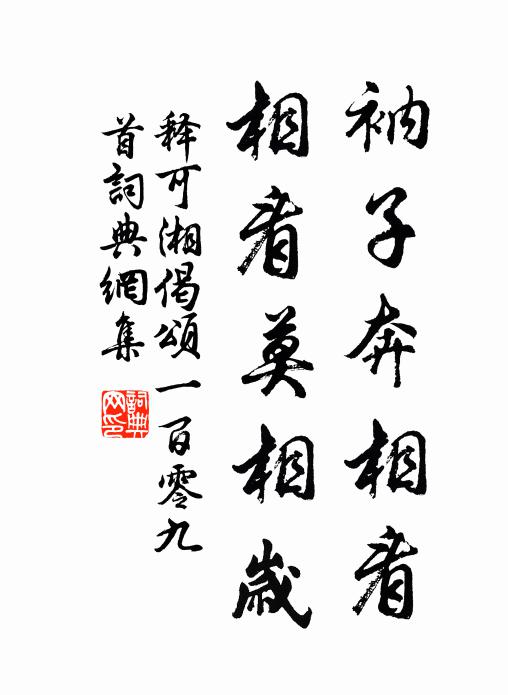 衲子奔相看
相看莫相歲
释可湘偈頌一百零九
首詞典網集
詞典网印